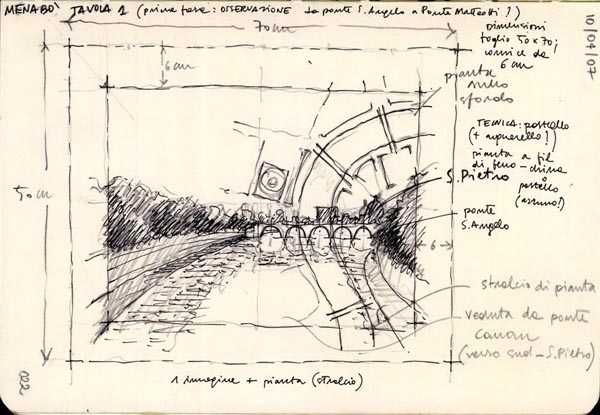 MENABO' TAVOLA 1 (prima fase: OSSERVAZIONE da ponte S. Angelo a Ponte Matteotti?)
70 cm
10/04/07
dimensioni
foglio 50 x 70;
cornice da
6 cm
6 cm
pianta
sullo
sfondo
TECNICA: pastello
(+ acquerello?)
pianta a fil
di ferro - china
o
pastello
(azzurro!)
S. Pietro
ponte
S. Angelo
50 cm
6
stralcio di pianta
veduta da ponte
Cavour
(verso sud - S. Pietro)
1 immagine + pianta (stralcio)
022